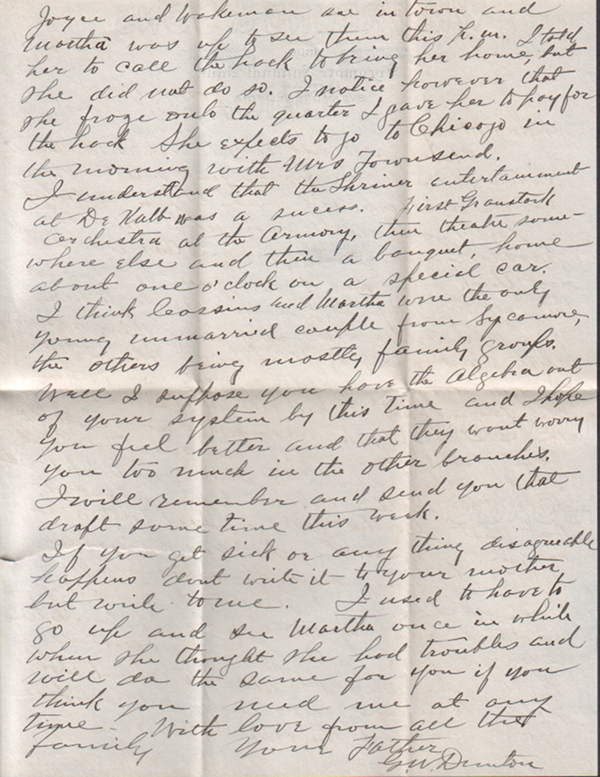 Joyce and Wakeman are in town and
Martha was up to see them this P.M. I told
her to call the hack to bring her home, but
she did not do so. I notice however that
she froze onto the quarter I gave her to pay for
the hack She expects to go to Chicago in
the morning with Mrs Townsend.
I understand that the Shriner entertainment
at De Kalb was a sucess. First
Orchestra at the Armory, then theatre some-
where else and then a banquet, home
about one o'clock on a special car.
I think and Martha were the only
young unmarried couple from Sycamore,
the others being mostly family groups.
Well I suppose you have the Algebra out
of your system by this time and I hope
you feel better and that they wont worry
you too much in the other branches.
I will remember and send you that
draft some time this week.
If you get sick or any thing disagreeable
happens dont write it to your mother
but write to me. I used to have to
go up and see Martha once in while
when she thought she had troubles and
will do the same for you if you
think you need me at any
time. With love from all the
family Your Father
GW Dunton